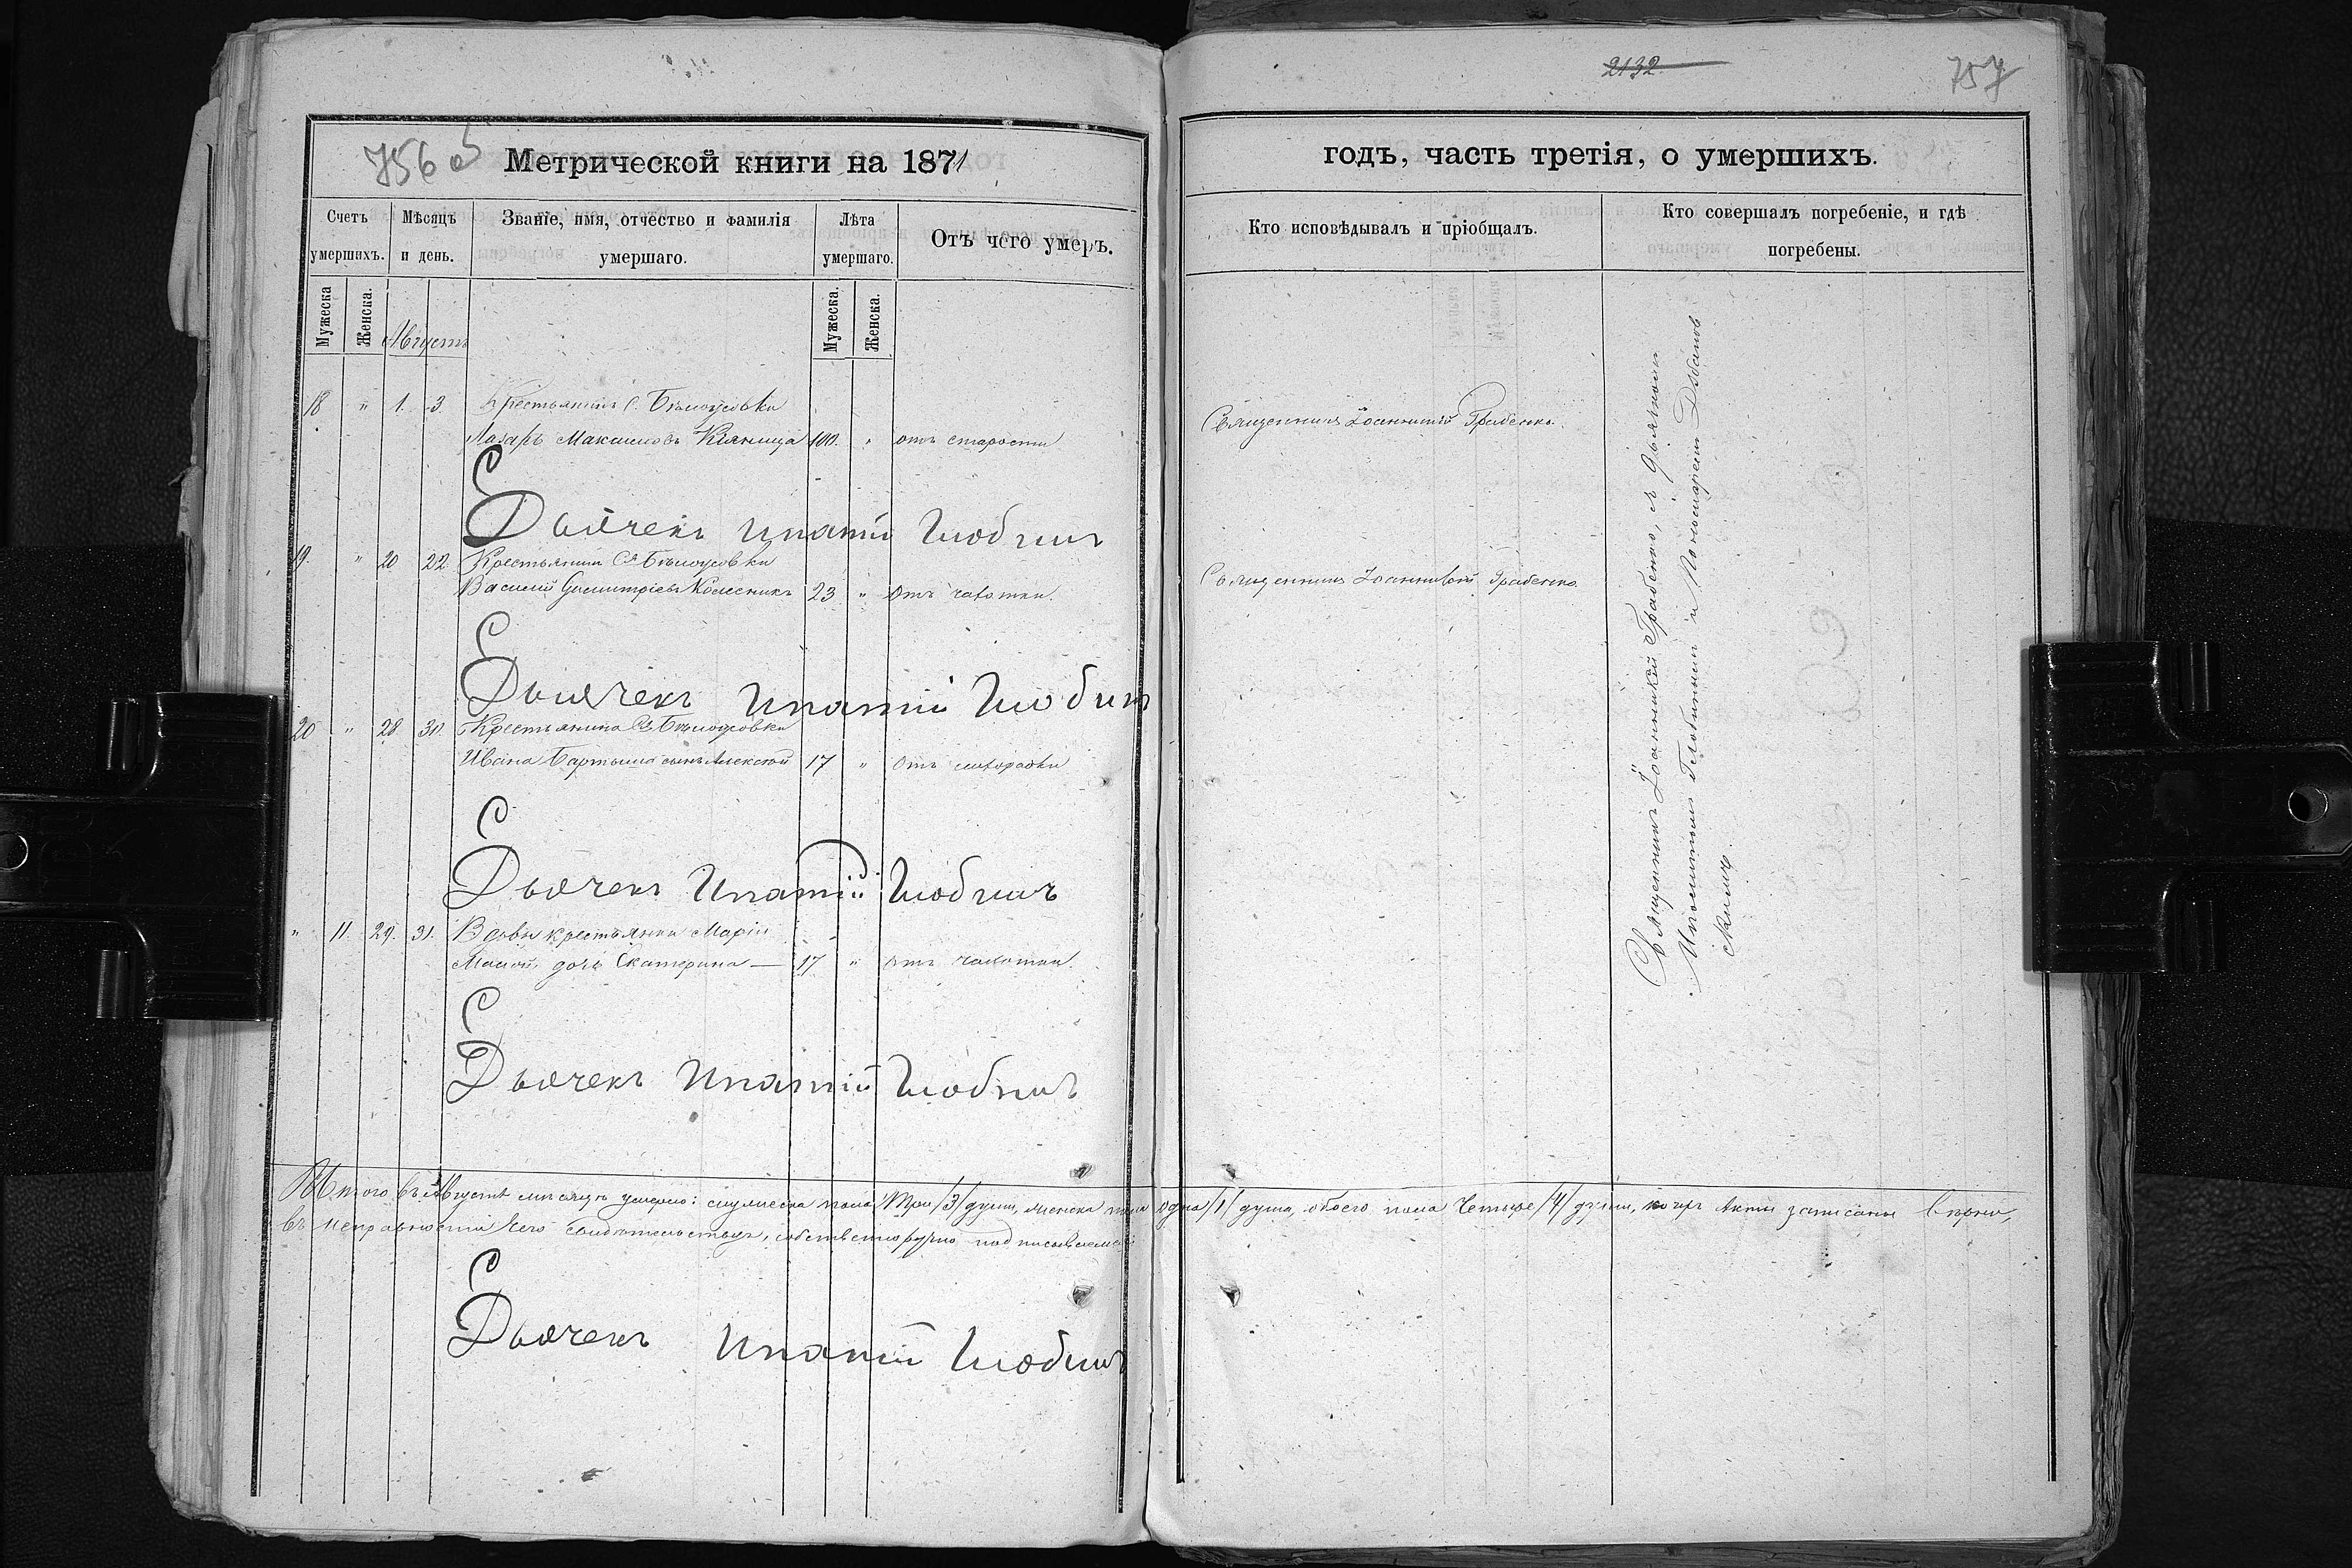 2132
757
756 об
Метрической книги на 1871
годъ, часть третія, о умершихъ.
Счетъ умершихъ.
Мѣсяцъ и день.
Званіе, имя, отчество и фамилія умершаго.
Лѣта умершаго.
Отъ чего умеръ.
Кто исповѣдывалъ и пріобщалъ.
Кто совершалъ погребеніе, и гдѣ погребены.
Мужеска
Женска.
Августъ
Мужеска.
Женска.
18 " 1. 3. Крестьянинъ С. Бѣлоусовки
Лазарь Максимовъ Кіяница 100. " отъ старости
Священникъ Іоанникій Грабенко.
Дьячекъ Ипатій Глобинъ
19. " 20 22. Крестьянинъ С. Бѣлоусовки
Василій Димитріевъ Колесникъ 23 " Отъ чахотки.
Священникъ Іоанникій Грабенко
Дьячекъ Ипатій Глобинъ
20 " 28 30. Крестьянина С. Бѣлоусовки
Ивана сынъ Алексѣй 17 " Отъ лихорадки
Дьячекъ Ипатій Глобинъ
" 11. 29. 31. Вдовы крестьянки Маріи
дочь Екатерина — 17 " отъ чахотки.
Дьячекъ Ипатій Глобинъ
Священникъ Іоанникій Грабенко, съ Дьячкомъ
Ипатіемъ Глобинымъ и Пономаремъ
Итого въ Августѣ мѣсяцѣ умерло: мужеска пола Три /3/ души, женска пола одна /1/ душа, обоего пола Четыре /4/ души, акты записаны вѣрно,
въ исправности чего свидѣтельствуя, собственноручно подписываемся
Дьячекъ Ипатій Глобинъ